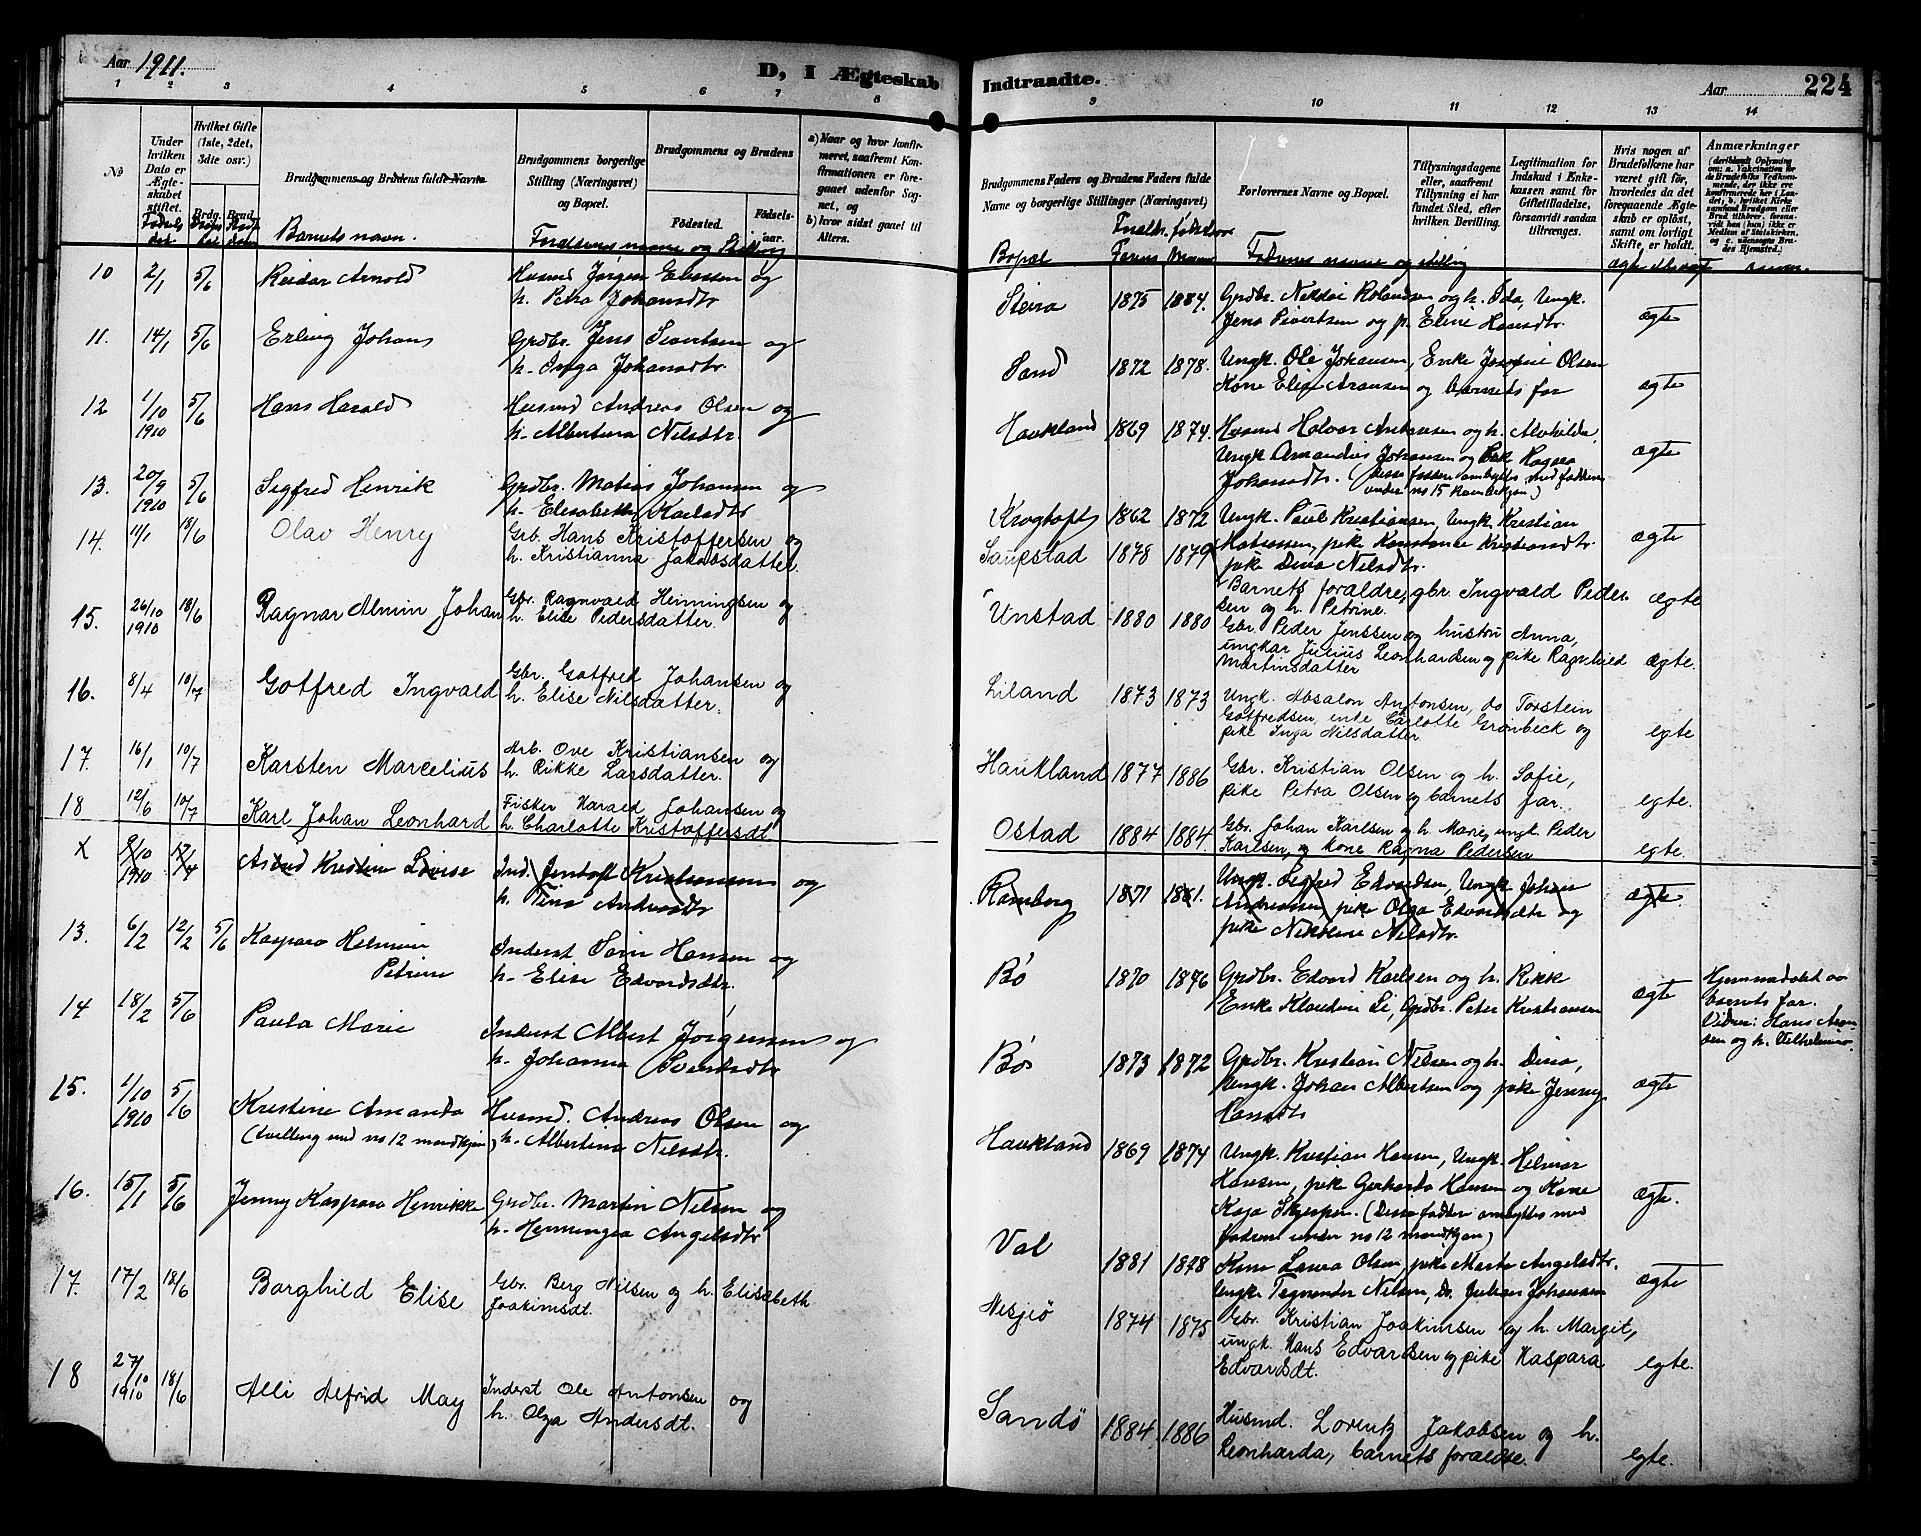 Aar 1911.
D, I Ægteskab
Indtraadte.
Aar
224
1 2 3 4 5 6 7 8 9 10 11 12 13 14
No
Under hvilken Dato er Ægteskabet stiftet.
Hvilket Gifte (1ste, 2det, 3die osv.)
Brdg. Brud.
Brudgommens og Brudens fulde Navne
Brudgommens borgerlige Stilling (Næringsvei) og Bopæl.
Brudgommens og Brudens
Fødested. Fødselsaar.
a) Naar og hvor konfirmeret, saafremt Konfirmationen er foregaaet udenfor Sognet, og
b) hvor sidst gaaet til Alters.
Brudgommens Faders og Brudens Faders fulde Navne og borgerlige Stillinger (Næringsvei)
Forlovernes Navne og Bopæl.
Tillysningsdagene eller, saafremt Tillysning ei har fundet Sted, efter hvilken Bevilling.
Legitimation for Indskud i Enkekassen samt for Giftetilladelse, forsaavidt saadan tiltrænges.
Hvis nogen af Brudefolkene har været gift før, hvorledes da det foregaaende Ægteskab er opløst, samt om lovligt Skifte, er holdt.
Anmærkninger
Barnets navn.
Forældrenes navne og Stilling
Bopæl
Forældr. fødselsaar
Farens Moren
Fadrenes navne og stilling
10 2/1 5/6 Reidar Arnold
Husmd Jørgen Eliessen og
h. Petra Johansdtr
Steira 1875 1884.
Grdbr. Nikolai Rolandsen og h. Ida, Ungk.
Jens Sivertsen og p. Eline Hansdtr. ægte
11. 14/1 5/6 Erling Johans
Grdbr. Jens Sivertsen og
h. Inga Johansdtr.
Sand 1872 1878.
Ungk. Ole Johansen, Enke Josefine Olsen
Kone Elise Aransen og barnets far ægte
12 1/10 1910 5/6 Hans Harald
Husmd Andreas Olsen og
h. Albertina Nilsdtr.
Haukland 1869 1874.
Husmd Halvor Antonsen og h. Alvhilda,
Ungk Amandus Johansen og Pike Ragna
Johansdtr. (disse faddere ombyttes med faddere
under no 15 kvindekjøn) ægte
13. 20/9 1910 5/6 Sigfred Henrik
Grdbr. Matias Johansen og
h. Elisabeth Karlsdtr
Krogtoft 1862 1872
Ungk. Paul Kristiansen, Ungk. Kristian
Matiassen, pike Konstance Kristiansdtr.
pike Dina Nilsdtr. ægte
14. 11/1 18/6 Olav Henry
Grb. Hans Kristoffersen og
h. Kristianna Jakobsdatter.
Saupstad 1878 1879
Barnets foraldre, gbr. Ingvald Peder
sen og h. Petrine. ægte
15. 26/10 1910 18/6 Ragnar Almin Johan
Gbr. Ragnvald Henningsen og
h. Elise Pedersdatter.
Unstad 1880 1880
Gbr. Peder Jenssen og hustru Anna,
ungkar Julius Leonhardsen og pike Ragnhild
Martinsdatter ægte.
16. 8/4 10/7 Gotfred Ingvald
Gbr. Gotfred Johansen og
h. Elise Nilsdatter.
Liland 1873 1873
Ungk. Absalon Antonsen, do Torstein
Gotfredsen, enke Carlotte Grønbeck og
pike Inga Nilsdatter egte
17. 16/1 10/7 Karsten Marcelius
Arb. Ove Kristiansen og
h. Rikke Larsdatter.
Haukland 1877 1886
Gbr. Kristian Olsen og h. Sofie,
pike Petra Olsen og barnets far. egte.
18 12/6 10/7 Karl Johan Leonhard
Fisker Harald Johansen og
h. Charlotte Kristoffersdt.
Ostad 1884 1884.
Gbr. Johan Karlsen og h. Marie, ungk. Peder
Karlsen, og kone Ragna Pedersen egte.
X 9/10 1910 17/4 Astrid Kristine Lovise
Ind. Jentoft Kristiansen og
h. Tina Andersdtr
Ramberg 1871 1881.
Ungk. Sigfred Edvardsen, Ungk Johan
Andreassen, pike Olga Edvardsdtr og
pike Nikoline Nilsdtr. ægte
13. 6/2 12/2 5/6 Kaspara Helmine
Petrine
Inderst Søren Hansen og
h. Elise Edvardsdtr.
Bø 1870 1876
Grdbr. Edvard Karlsen og h. Rikke
Enke Klaudine Li, Grdbr. Peter Kristiansen ægte
Hjemmedøbt av
barnets far.
Vidner: Hans Aron
sen og h. Vilhelmine.
14 18/2 5/6 Paula Marie
Inderst Albert Jørgensen og
h. Johanna Sivertsdtr
Bø 1873 1872
Grdbr. Kristian Nilsen og h. Dina,
Ungk. Johan Albertsen og pike Jenny
Hansdtr ægte
15. 1/10 1910 5/6 Kristine Amanda
(tvilling med no 12 mandkjøn)
Husmd. Andreas Olsen og
h. Albertina Nilsdtr.
Haukland 1869 1874
Ungk. Kristian Hansen, Ungk. Hilmar
Hansen, pike Gerharda Hansen og Kone
Kaja Skjerpen. (Disse faddere ombyttes med
fadrene under no 12 mandkjøn) ægte.
16. 15/1 5/6 Jenny Kaspara Henrikke
Grdbr. Martin Nilsen og
h. Henningea Angelsdtr
Val 1881 1878
Kone Laura Olsen, pike Marta Angelsdtr.
Ungk. Tegnander Nilsen, Do. Julian Johansen ægte
17. 17/2 18/6 Borghild Elise
Gbr. Berg Nilsen og h. Elisabeth
Joakimsdt.
Nesjeø 1874 1875
Gbr. Kristian Joakimsen og h. Margit,
ungk. Hans Edvardsen og pike Kaspara
Edvardsdt. egte.
18 27/10 1910 18/6 Alli Alfrid May
Inderst Ole Antonsen og
h. Olga Andersdt.
Sandø 1884 1886
Husmd. Lorentz Jakobsen og h.
Leonharda, barnets foraldre. egte.